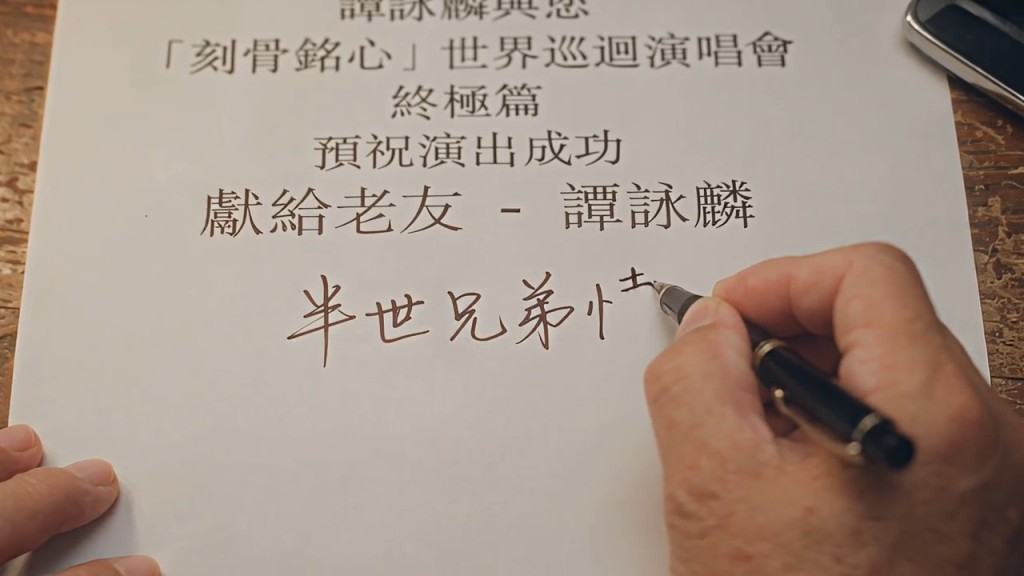 譚詠麟與您
「刻骨銘心」世界巡迴演唱會
終極篇
預祝演出成功
獻給老友 - 譚詠麟
半世兄弟